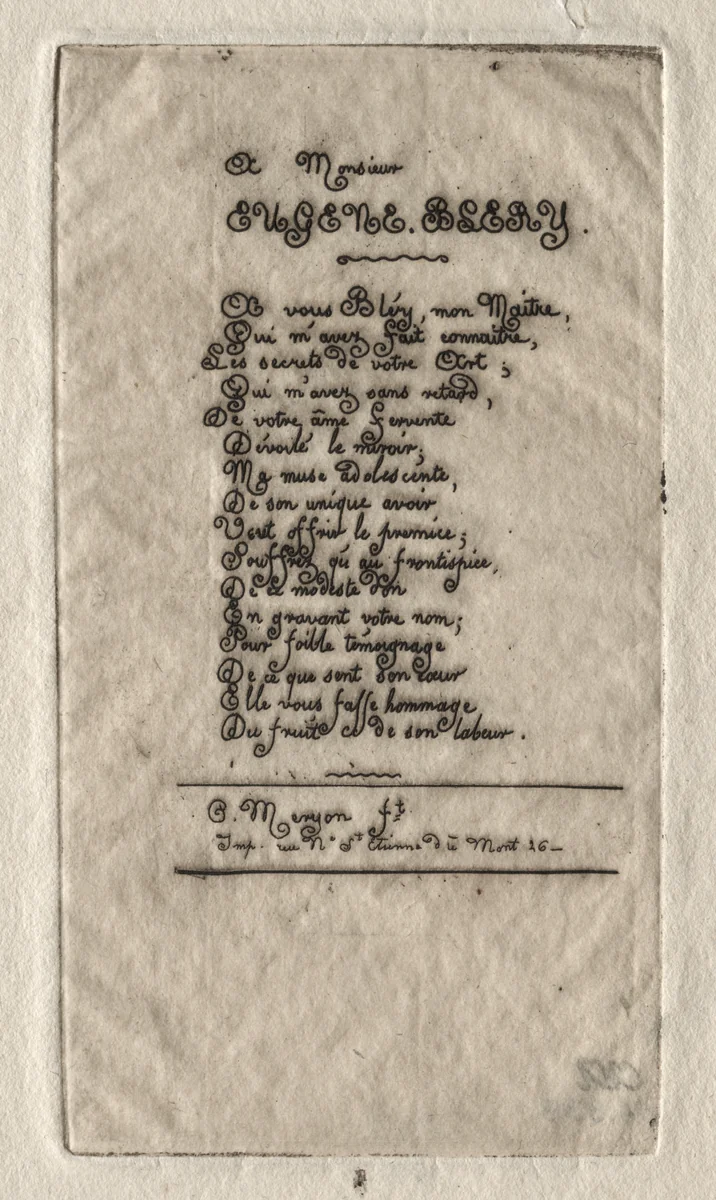 A Monsieur
EUGENE. BLERY.
A vous Bléry, mon Maitre,
Qui m'avez fait connaitre,
Les secrets de votre Art;
Qui m'avez sans retard,
De votre âme fervente
Dévoilé le miroir;
Ma muse adolescente,
De son unique avoir
Veut offrir le premice;
Souffrez qu'au frontispice,
De ce modeste don
En gravant votre nom;
Pour foible témoignage
De ce que sent son cœur
Elle vous fasse hommage
Du fruit ce de son labeur.
C. Meryon ft
Imp. rue Ne St Etienne du Mont 26_